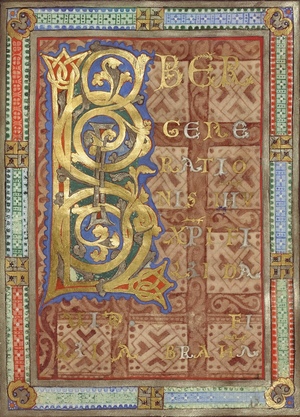 LIBER
GENE
RATIO
NIS IHV
XPI FI
LII DA
VID FI
LII ABRAHA